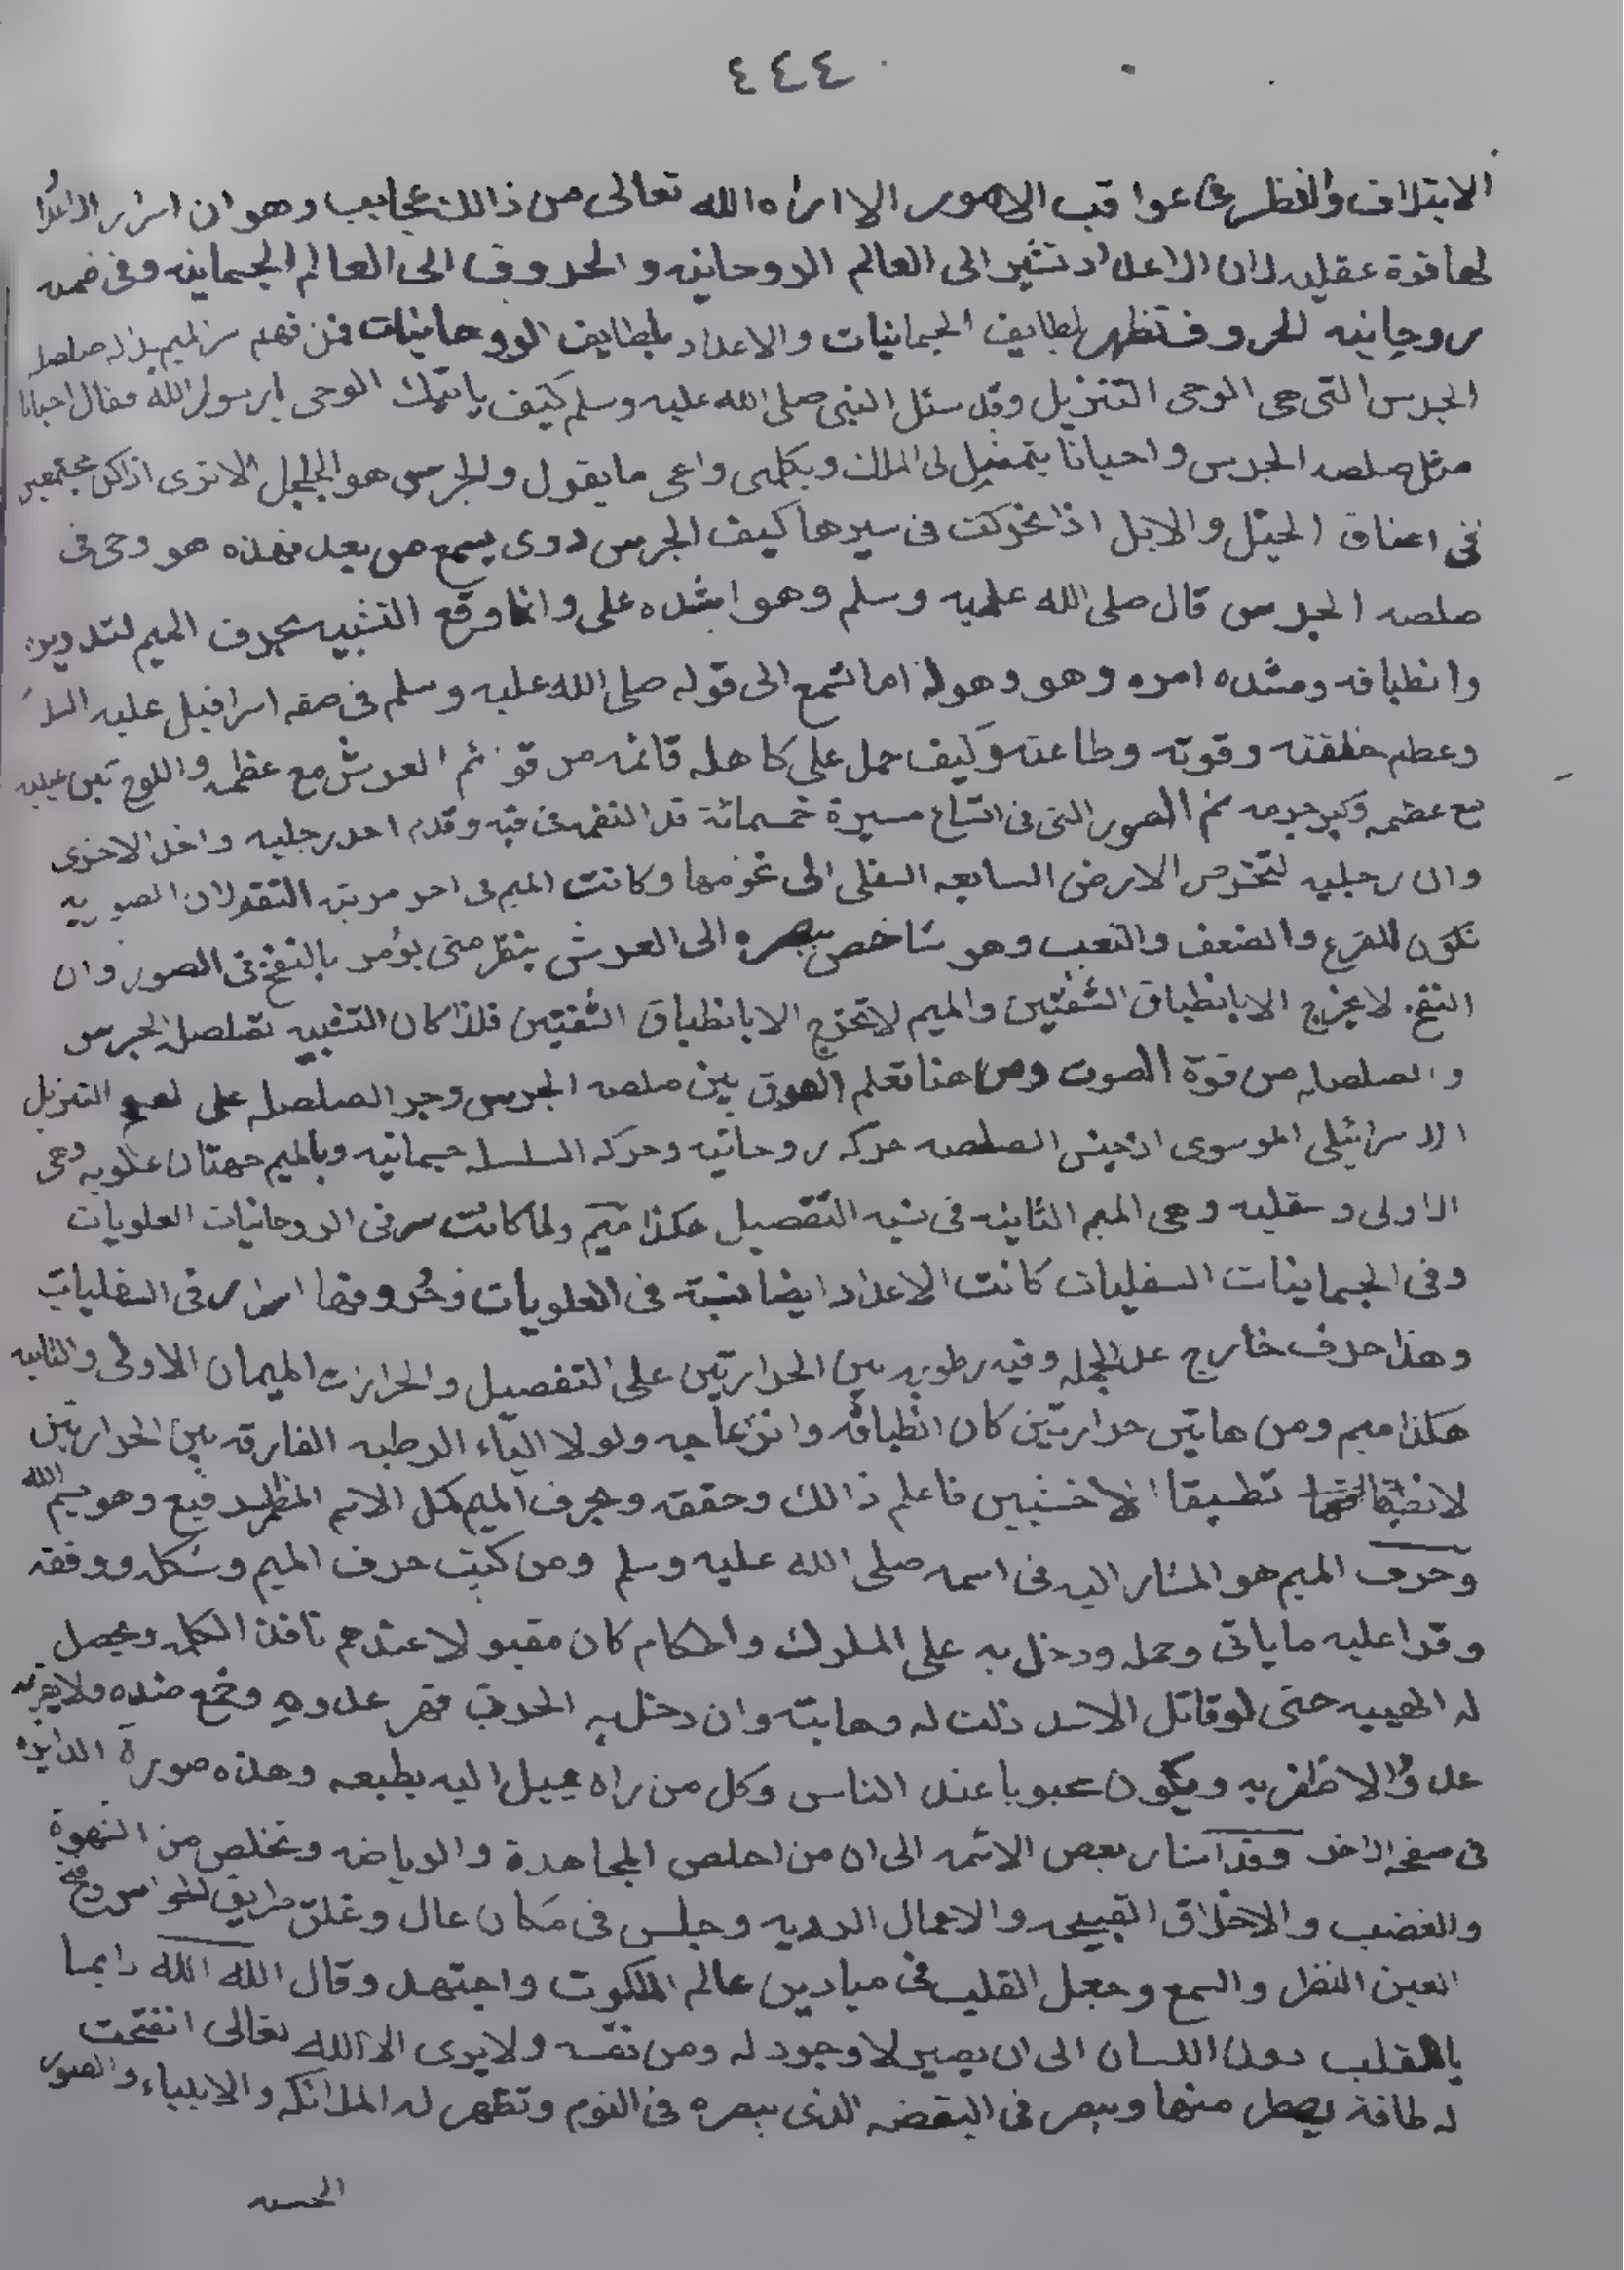 ٤٤٤
الايتلاف والنظر فى عواقب الامور الا اراه الله تعالى من ذالك عجايب وهو ان اسرار الاعدا
لها قوة عقليه لان الاعداد تشير الى العالم الروحانيه والحروف الى العالم الجسمانيه وفى ضمن
روحانيه للحروف تظهر لطايف الجسمانيات والاعداد بلطايف الروحانيات فمن فهم سر الميم صلصله
الجرس التى هى الوحى التنزيل وقد سئل النبى صلى الله عليه وسلم كيف ياتيك الوحى يا رسول الله فقال احيانا
مثل صلصه الجرس واحيانا يتمثل لى الملك ويكلمى واعى ما يقول والجرس هو الجلجل الا ترى اذا كن مجتمعين
فى اعناق الخيل والابل اذا تحركت فى سيرها كيف الجرس دوى يسمع من بعد فهذه هو وحى فى
صلصه الجرس قال صلى الله عليه وسلم وهو اشده على وانما وقع التشبيه بحرف الميم لتدويره
وانطباقه ومشده امره وهو وهوله اما تسمع الى قوله صلى الله عليه وسلم فى صفه اسرافيل عليه السلا
وعظم خلقته وقوته وطاعته وكيف حمل على كاهله قائمه من قوئم العرش مع عظمه واللوح بين عينيه
مع عظمه وكبر جرمه ثم الصور التى فى اتساع مسيرة خمسمائة قد التقمه فى فيه وقدم احد رجليه واخر الاخرى
وان رجليه لتخرص الارض السابعه السفلى الى تخومها وكانت الميم فى احر مرتبه التقولان الصوريه
تكون للفزع والضعف والتعب وهو شاخص ببصره الى العرش ينظر متى يؤمر بالنفخ فى الصور وان
النفخ لا يخرج الا بانطباق الشفتين والميم لا تخرج الا بانطباق الشفتين فلذا كان التشبيه بصلصله الجرس
والصلصله من قوة الصوت ومن هنا تعلم الفرق بين صلصه الجرس وجر الصلصله على التنزيل
الاسرائيلى الموسوى اذ جنس الصلصه حركه روحانيه وحركه السلسله جسمانيه وبالميم جهتان علويه وهى
الاولى وسفليه وهى الميم الثانيه فى نسبه التفصيل هكذا ميم ولما كانت سر فى الروحانيات العلويات
وفى الجسمانيات السفليات كانت الاعداد ايضا نسبة فى العلويات وحُروفها اسرار فى السفليات
وهذا حرف خارج عن الجمله وفيه رطوبه بين الحرارتين على التفصيل والحرارت الميمان الاولى والثانيه
هكذا ميم ومن هاتين حرارتين كان انطباقه وانزعاجه ولولا الياء الرطبه الفارقه بين الحرارتين
تطبيقا الاخشبين فاعلم ذالك وحققه وبحرف الميم كمل الاسم المظهر رفيع وهو بسم الله
وحرف الميم هو المشار اليه فى اسمه صلى الله عليه وسلم ومن كتب حرف الميم وشكله ووفقه
وقرا عليه ما ياتى وحمله ودخل به على الملوك والحكام كان مقبولا عندهم نافذ الكلمه ويحصل
له الهيبه حتى لو قاتل الاسد ذلت له وهابته وان دخل به الحرب قهر عدوه وقمع ضده ولا يعرفه
عدوُّ الا ظفر به ويكون محبوبا عند الناس وكل من راه يميل اليه بطبعه وهذه صورة الدايره
فى صفحه الاخر وقد اشار بعص الائمه الى ان من اخلص المجاهدة والرياضه وتخلص من الشهوة
والغضب والاخلاق القبيحه والاعمال الرديه وجلس فى مكان عال وغلق طريق الحواس وفتح
العين النظر والسمع وجعل القلب فى ميادين عالم الملكوت واجتهد وقال الله الله دايما
بالقلب دون اللسان الى ان يصير لا وجود له ومن نفسه ولا يرى الا الله تعالى انفتحت
له طاقة ينظر منها ويبصر فى اليقضه الذى يبصره فى النوم وتظهر له الملائكه والانبياء والصور
الحسنه